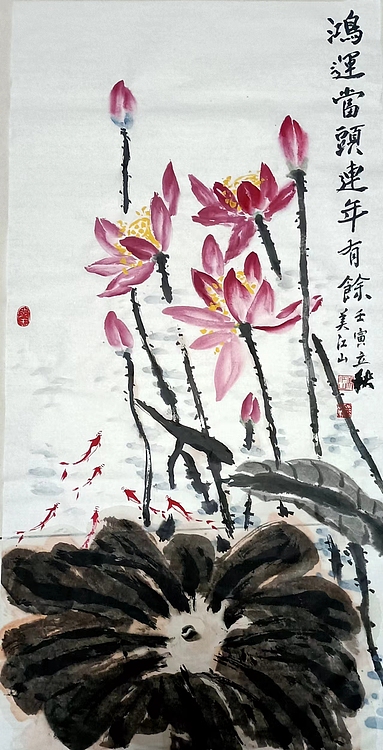 鴻運當頭連年有餘
壬寅立秋
美江山